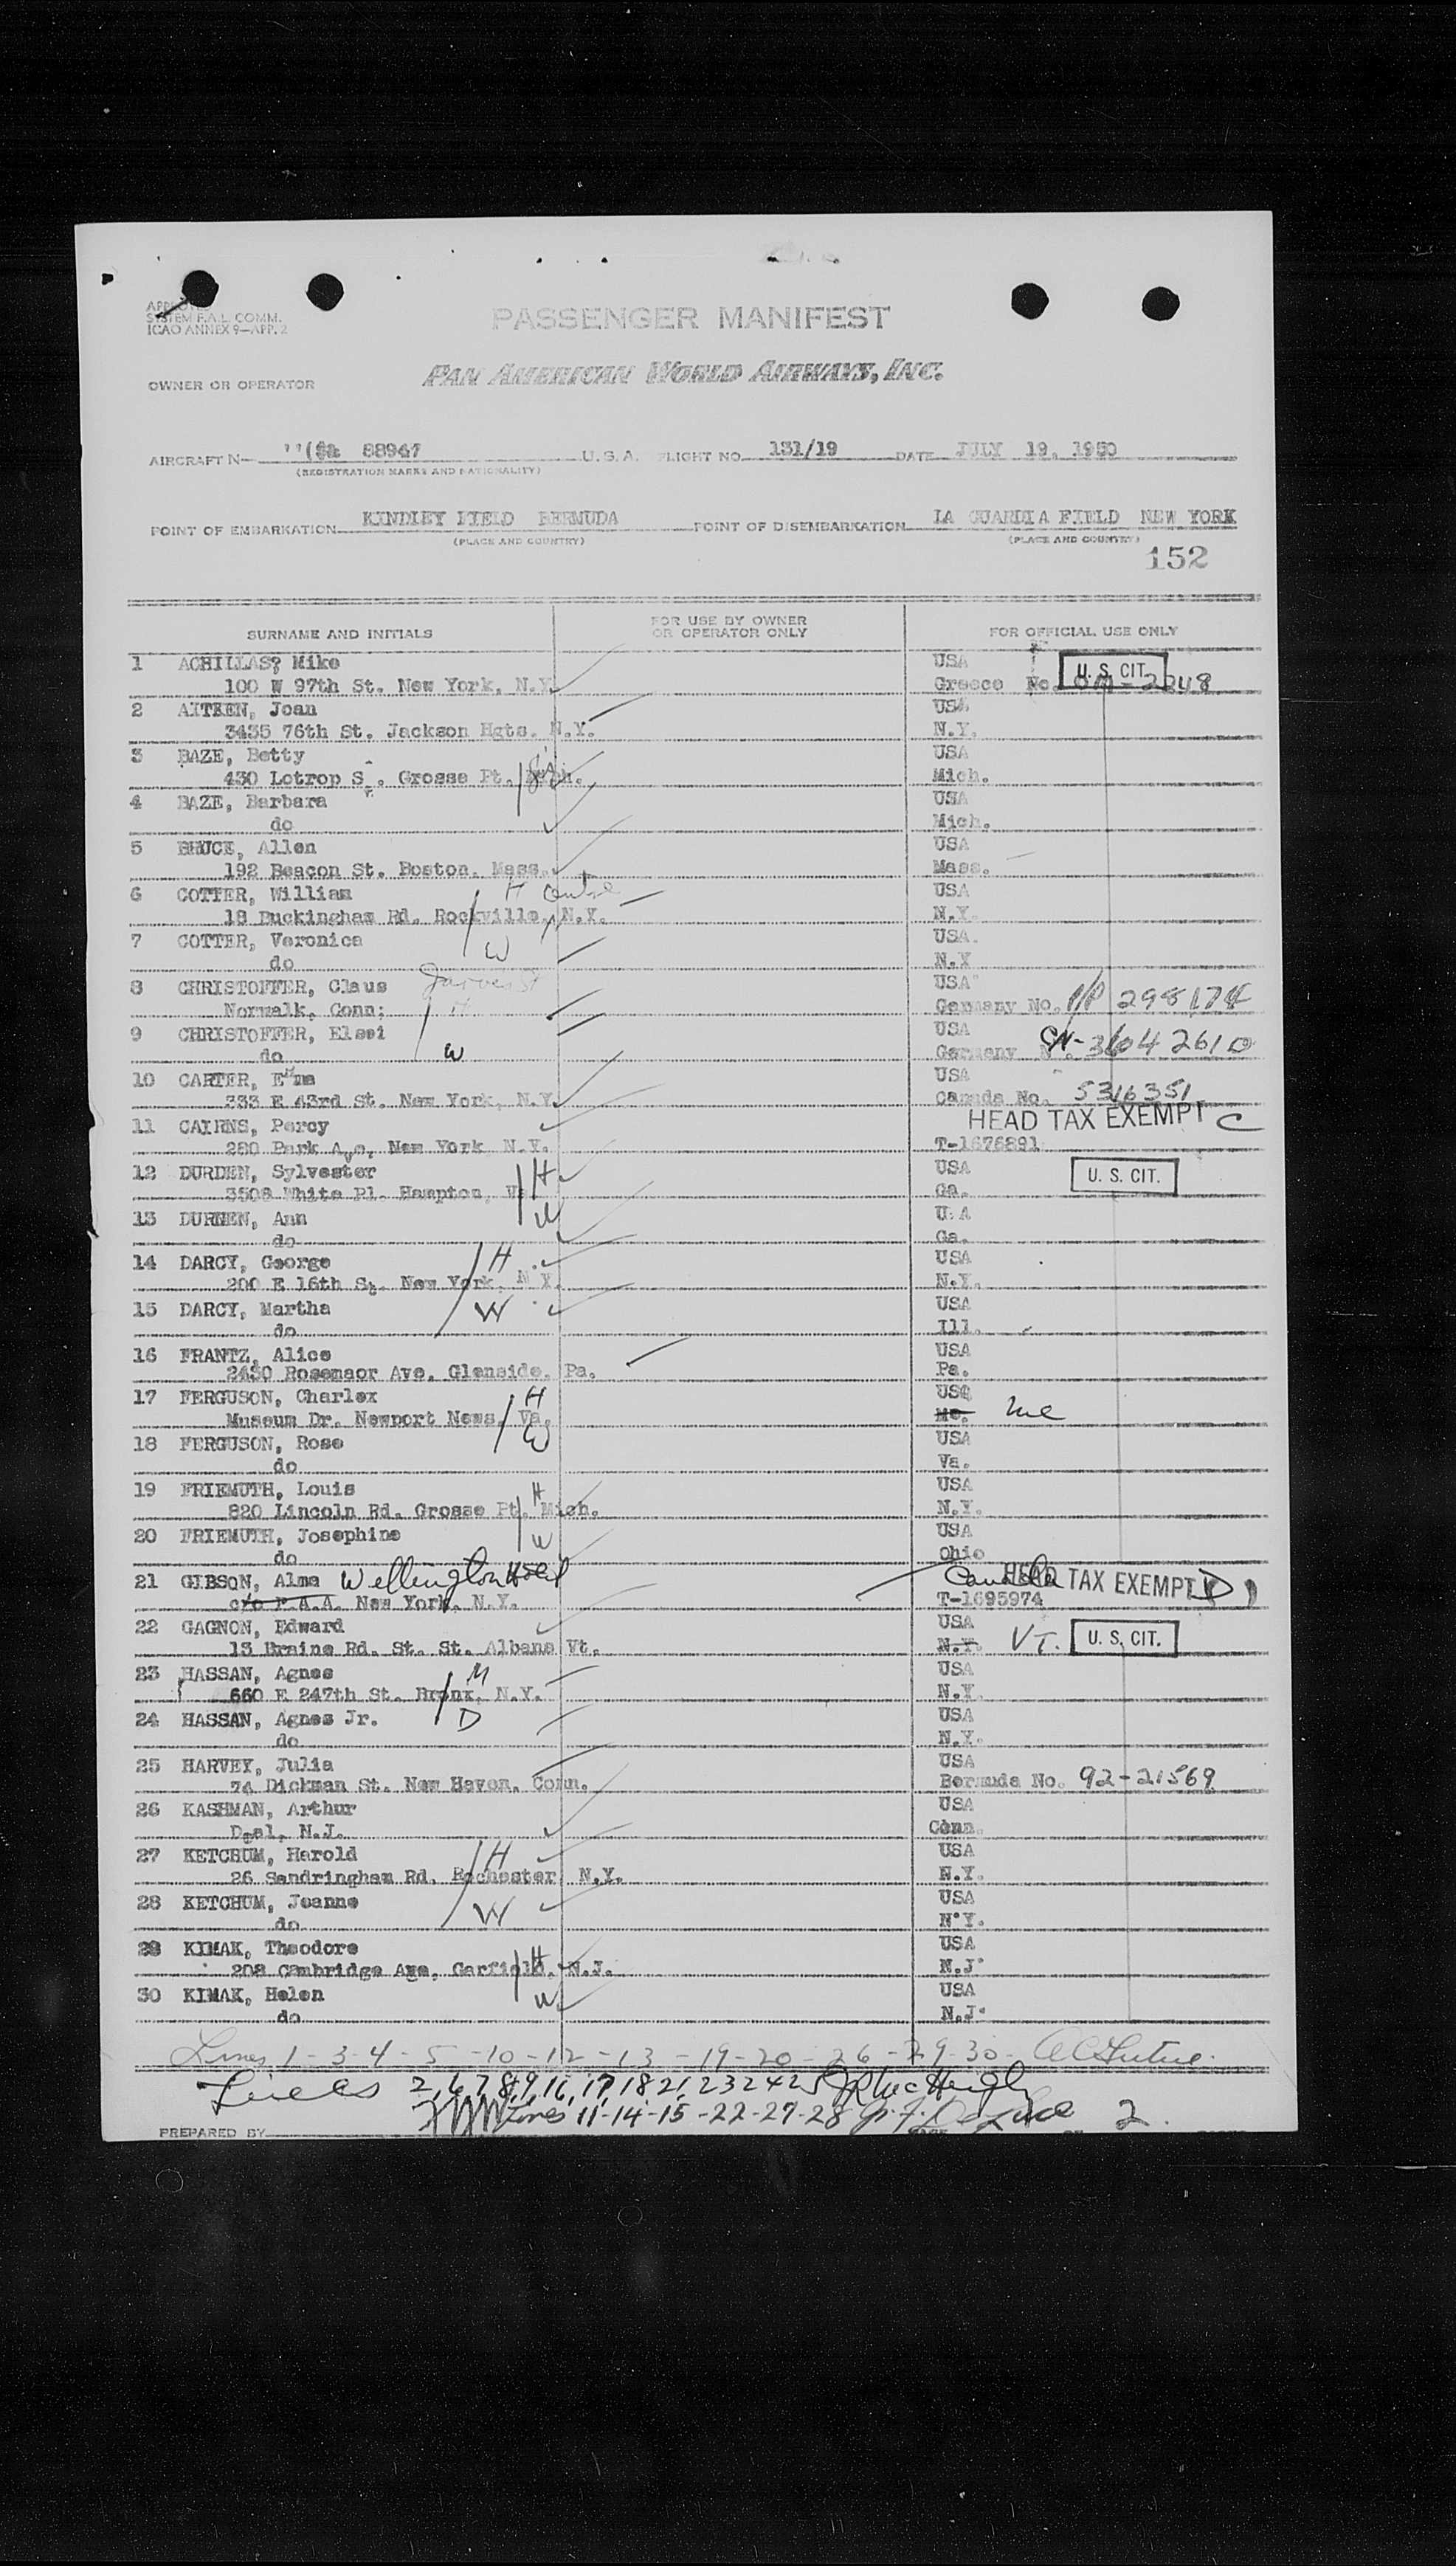 APPROVED
SYSTEM F.A.L. COMM.
ICAO ANNEX 9—APP. 2
PASSENGER MANIFEST
OWNER OR OPERATOR PAN AMERICAN WORLD AIRWAYS, INC.
AIRCRAFT N— ''($& 88947 U.S.A. FLIGHT NO. 131/19 DATE JULY 19, 1950
(REGISTRATION MARKS AND NATIONALITY)
POINT OF EMBARKATION KINDLEY FIELD BERMUDA POINT OF DISEMBARKATION LA GUARDIA FIELD NEW YORK
(PLACE AND COUNTRY) (PLACE AND COUNTRY)
152
SURNAME AND INITIALS FOR USE BY OWNER OR OPERATOR ONLY FOR OFFICIAL USE ONLY
1 ACHILLAS? Mike USA U. S. CIT.
100 W 97th St. New York, N.Y. Greece No.
2 AITKEN, Joan USA
3435 76th St. Jackson Hgts. N.Y. N.Y.
3 BAZE, Betty USA
430 Lotrop S . Grosse Pt. Mich. Mich.
4 BAZE, Barbara USA
do Mich.
5 BRUCE, Allen USA
192 Beacon St. Boston. Mass. Mass.
6 COTTER, William H Centre USA
18 Buckingham Rd. Rockville, N.Y. N.Y.
7 COTTER, Veronica W USA.
do N.Y
8 CHRISTOFFER, Claus USA
Norwalk, Conn; H Germany No. P/P 298174
9 CHRISTOFFER, Elsei USA
do W Germany No. CN-3642610
10 CARTER, Emma USA
333 E 43rd St. New York, N.Y. Canada No. 5316351
11 CAIRNS, Percy HEAD TAX EXEMPT C
280 Park Ave, New York N.Y. T-1676891
12 DURDEN, Sylvester H USA U. S. CIT.
3508 White Pl. Hampton, Va Ga.
13 DURNEN, Ann W U.A
do Ga.
14 DARCY, George H USA
200 E 16th St. New York, N.Y. N.Y.
15 DARCY, Martha W USA
do Ill.
16 FRANTZ, Alice USA
2430 Rosemaor Ave. Glenside. Pa. Pa.
17 FERGUSON, Charlex H USA
Museum Dr. Newport News, Va. Me
18 FERGUSON, Rose W USA
do Va.
19 FRIEMUTH, Louis H USA
820 Lincoln Rd. Grosse Pt. Mich. N.Y.
20 FRIEMUTH, Josephine W USA
do Ohio
21 GIBSON, Alma Wellington Hotel Canada HEAD TAX EXEMPT D
c/o P.A.A. New York, N.Y. T-1695974
22 GAGNON, Edward USA
13 Braine Rd. St. St. Albans Vt. N.Y. VT. U. S. CIT.
23 HASSAN, Agnes M USA
660 E 247th St. Bronx, N.Y. N.Y.
24 HASSAN, Agnes Jr. D USA
do N.Y.
25 HARVEY, Julia USA
74 Dickman St. New Haven. Conn. Bermuda No. 92-21569
26 KASHMAN, Arthur USA
Deal, N.J. Conn.
27 KETCHUM, Harold H USA
26 Sandringham Rd. Rochester N.Y. N.Y.
28 KETCHUM, Jeanne W USA
do N.Y.
29 KIMAK, Theodore H USA
208 Cambridge Age, Garfield, N.J. N.J.
30 KIMAK, Helen W USA
do N.J.
Lines 1-3-4-5-10-12-13-19-20-26-29-30
Lines 2,6,7,8,9,16,17,18,21,23,24,25
Lines 11-14-15-22-27-28 2.
PREPARED BY